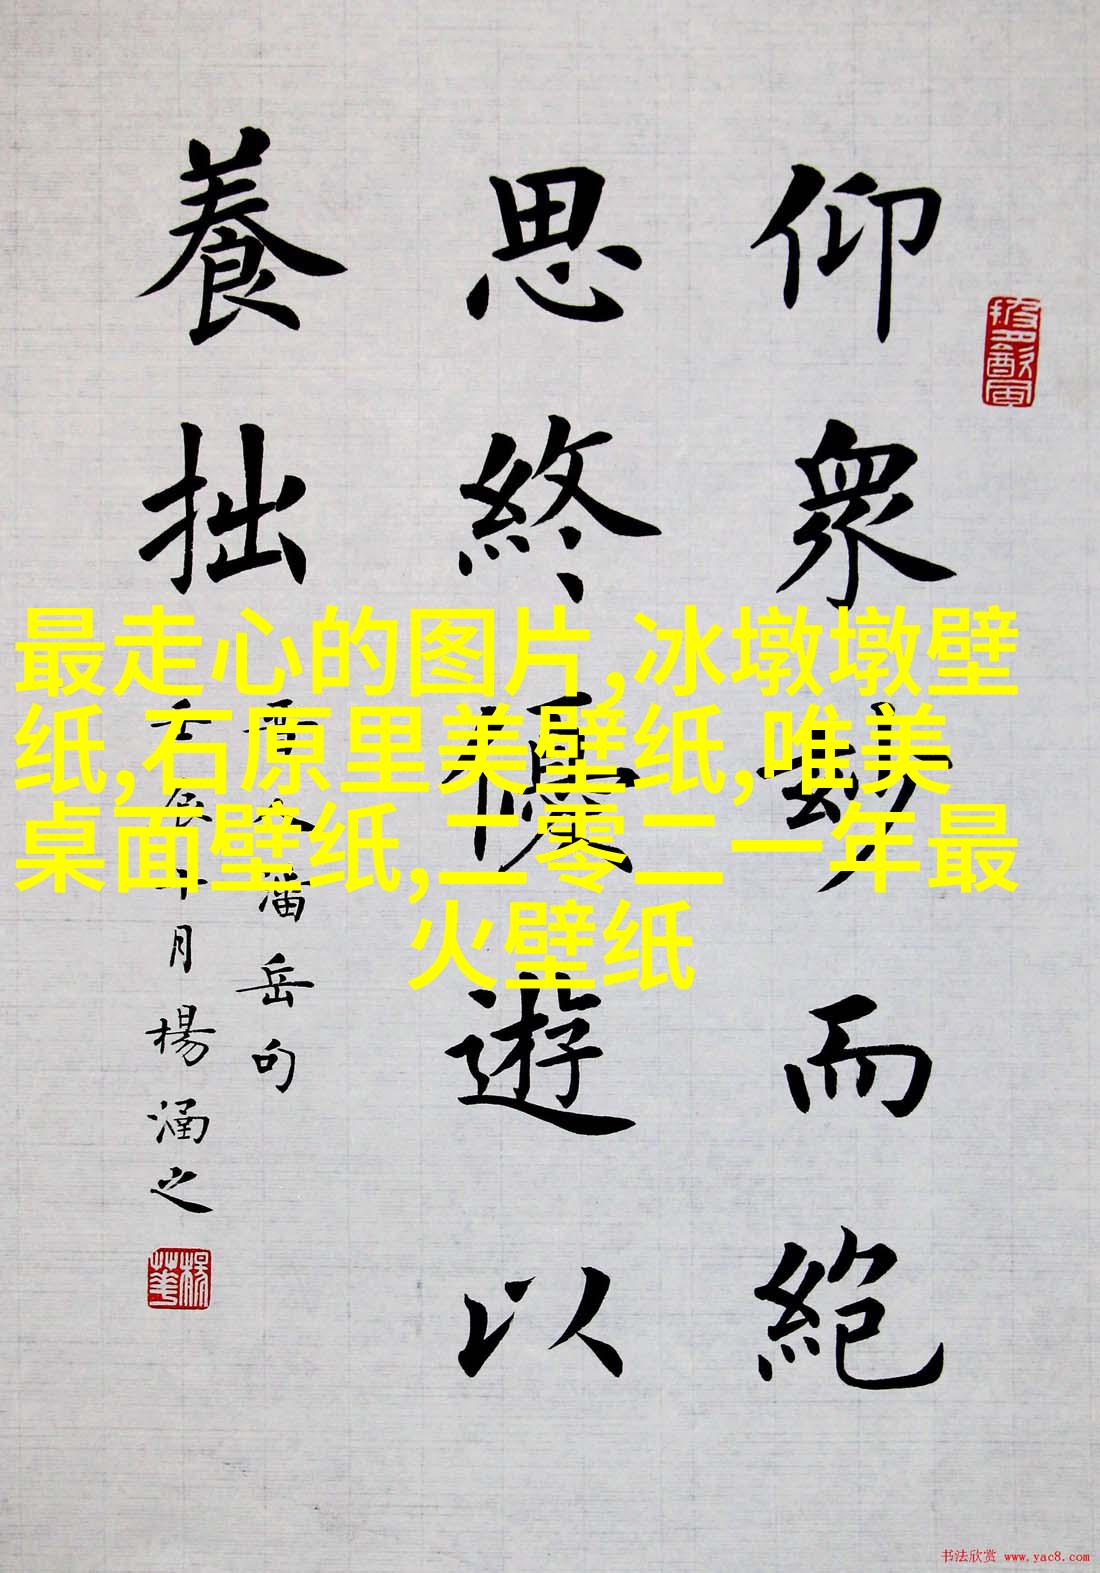 最走心的图片,冰墩墩壁
纸,石原里美壁纸,唯美
桌面壁纸,二零二一年最
火壁纸
仰衆玅而絕
思終優遊以
養拙
晋人潘岳句
壬辰十月楊涵之
书法欣赏 www.yac8.com